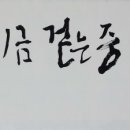 금 걷는 중